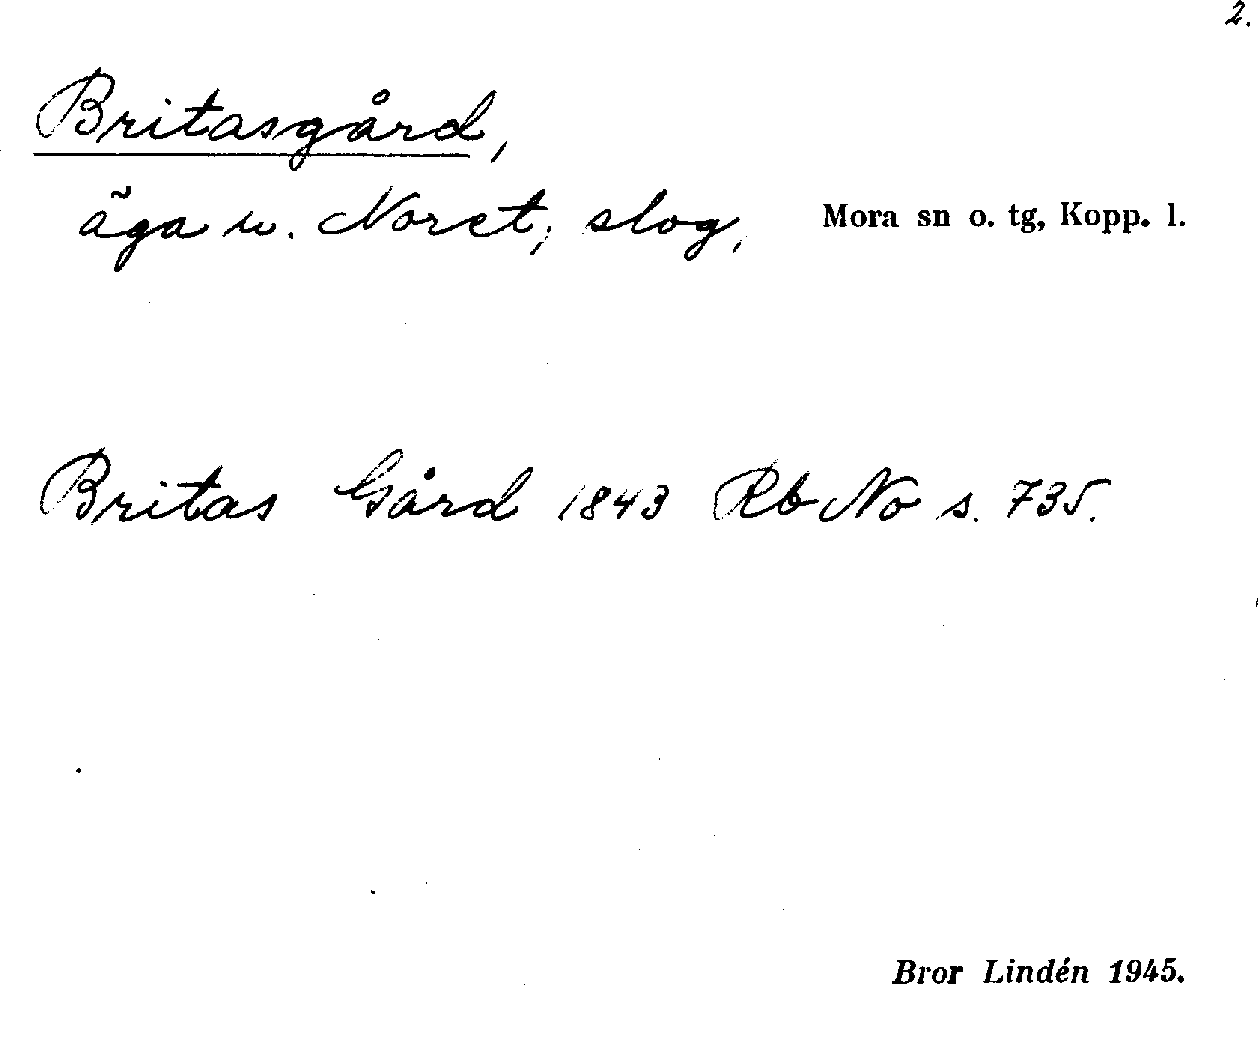 2.
Britasgård,
äga u. Noret, slog, Mora sn o. tg, Kopp. l.
Britas Gård 1843 Rb No s. 735.
Bror Lindén 1945.